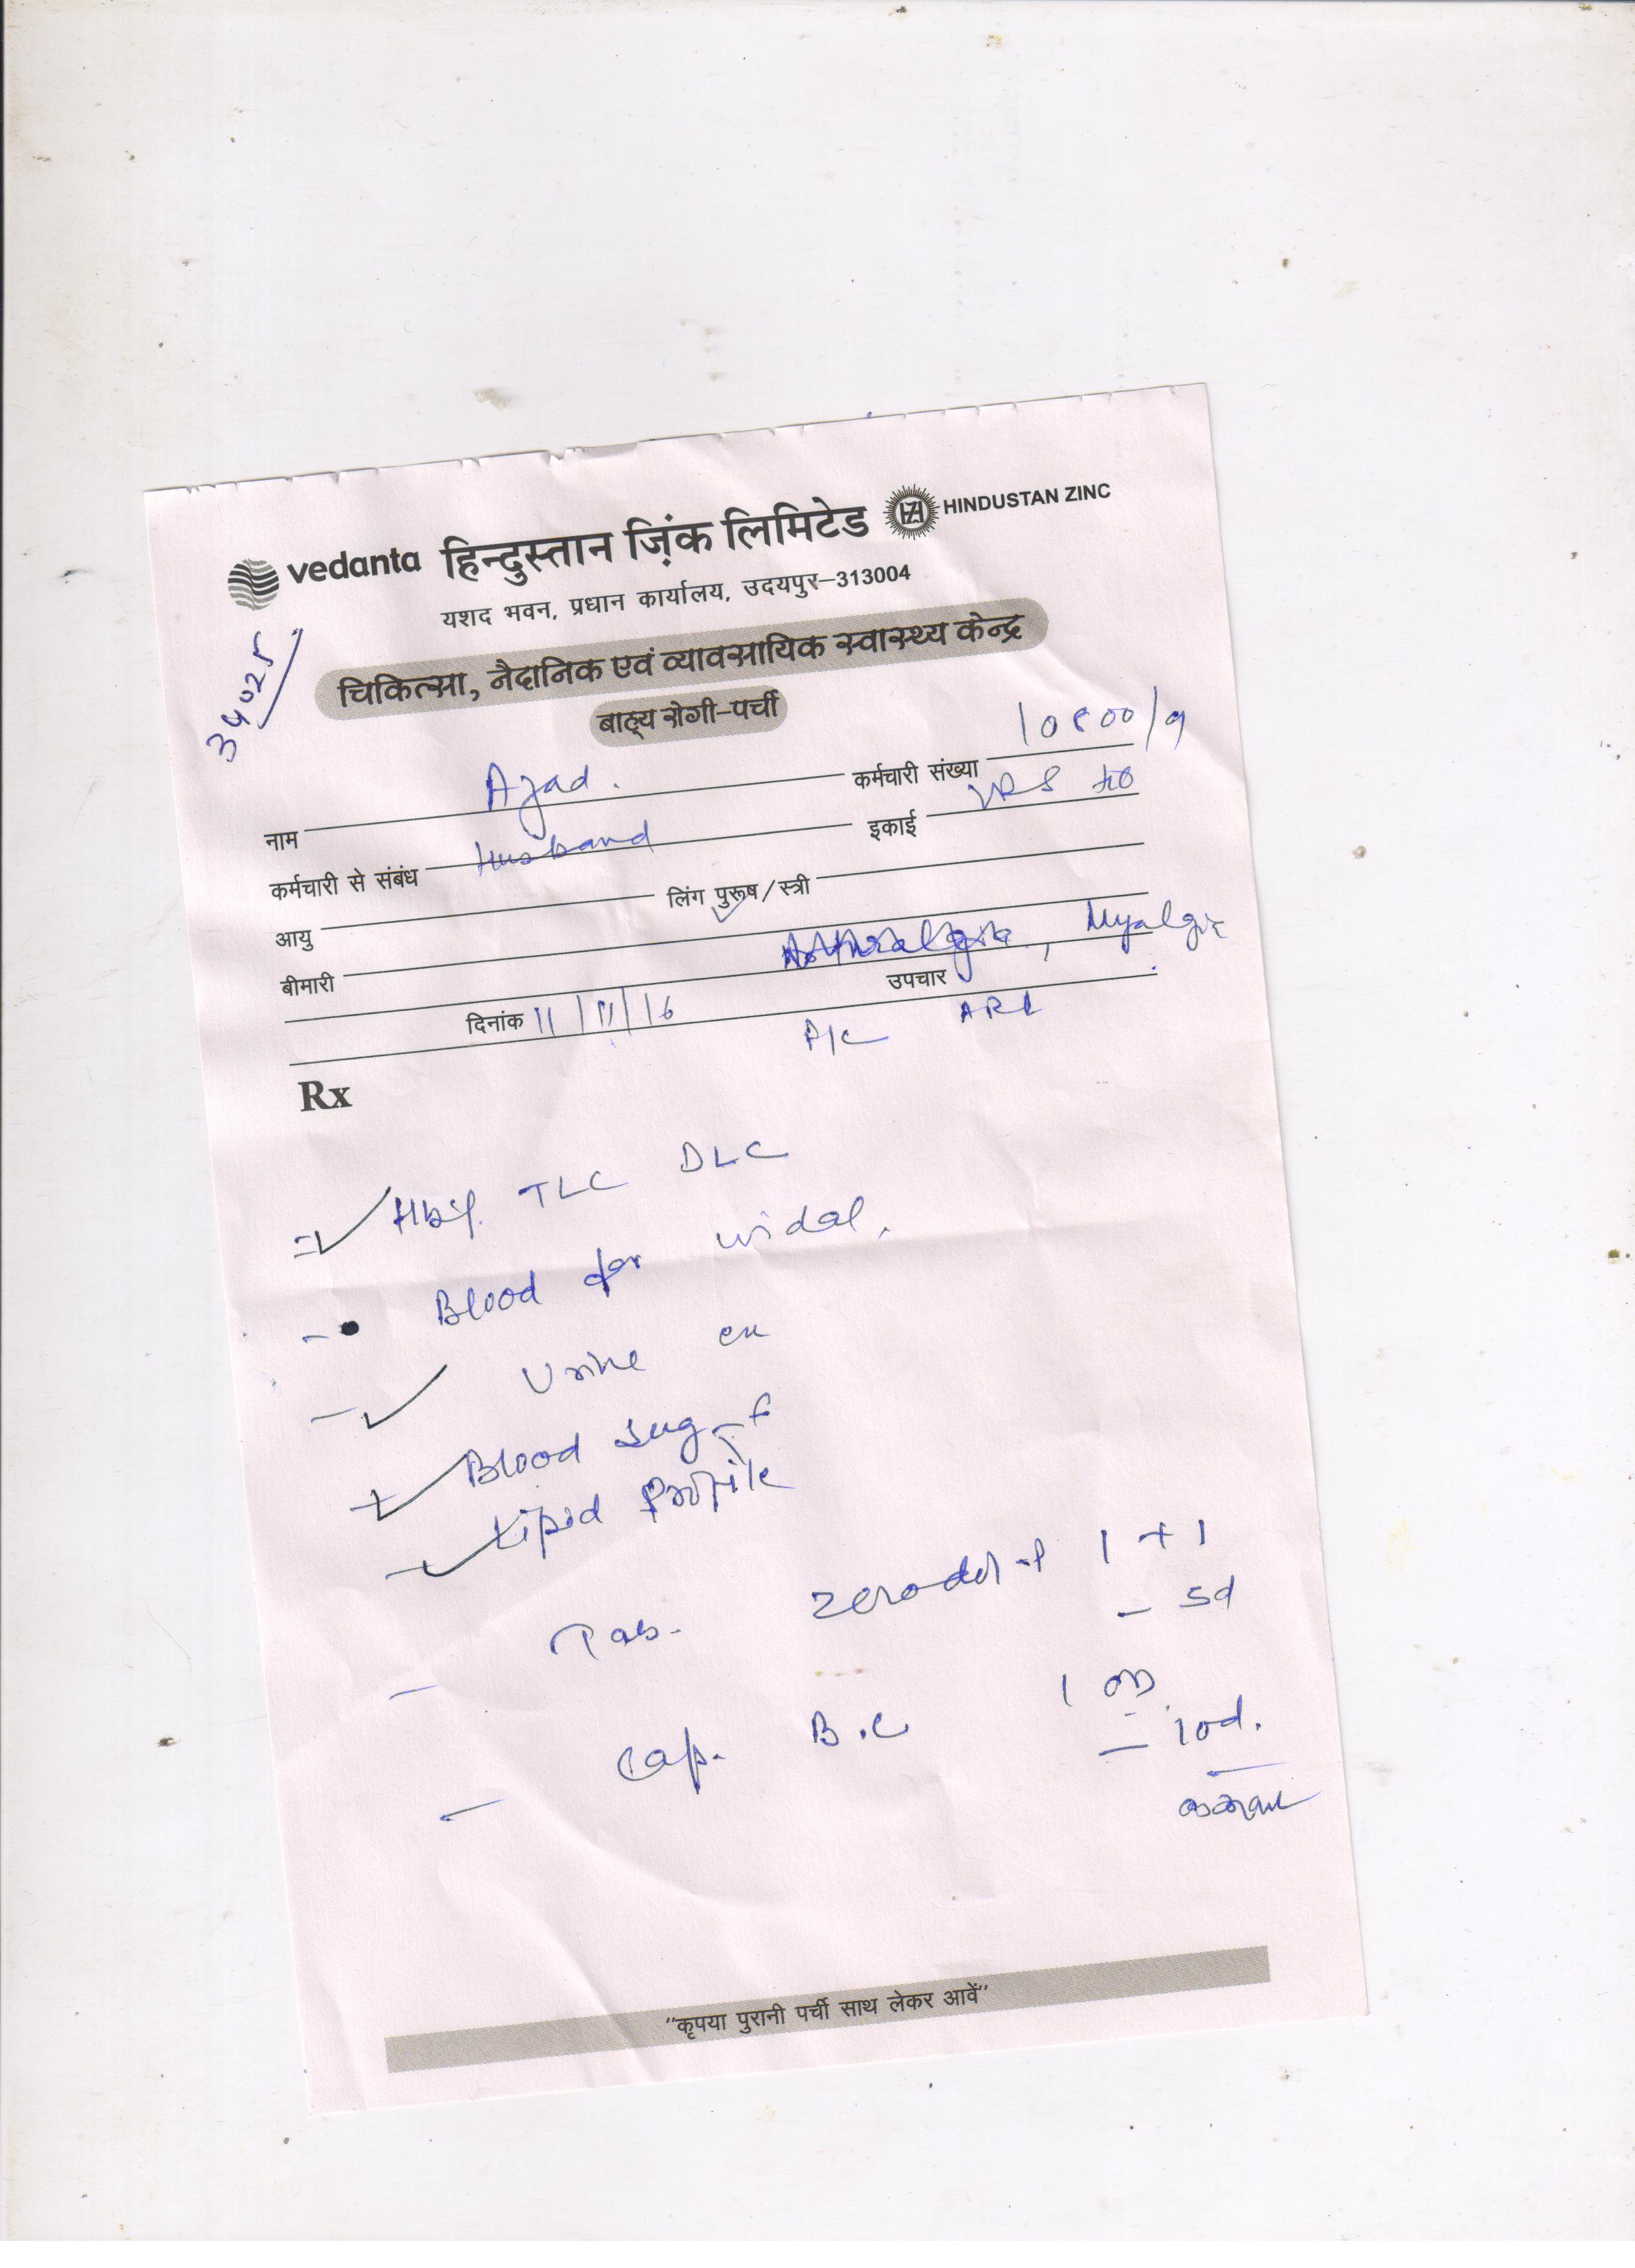 vedanta हिन्दुस्तान ज़िंक लिमिटेड HINDUSTAN ZINC
यशद भवन, प्रधान कार्यालय, उदयपुर–313004
34025
चिकित्सा, नैदानिक एवं व्यावसायिक स्वास्थ्य केन्द्र
बाह्य रोगी-पर्ची
नाम Azad. कर्मचारी संख्या 10800/9
कर्मचारी से संबंध Husband इकाई VRS HO
आयु लिंग पुरूष/स्त्री
बीमारी Arthralgia, Myalgia
दिनांक 11/11/16 उपचार
Rx
Hb%. TLC DLC
- Blood for widal.
- Urine
Blood Sug - f
- Lipid Profile
- Tab. Zerodol-P 1+1
- 5d
- Cap. B.C 1 OD
- 10d.
"कृपया पुरानी पर्ची साथ लेकर आवें"